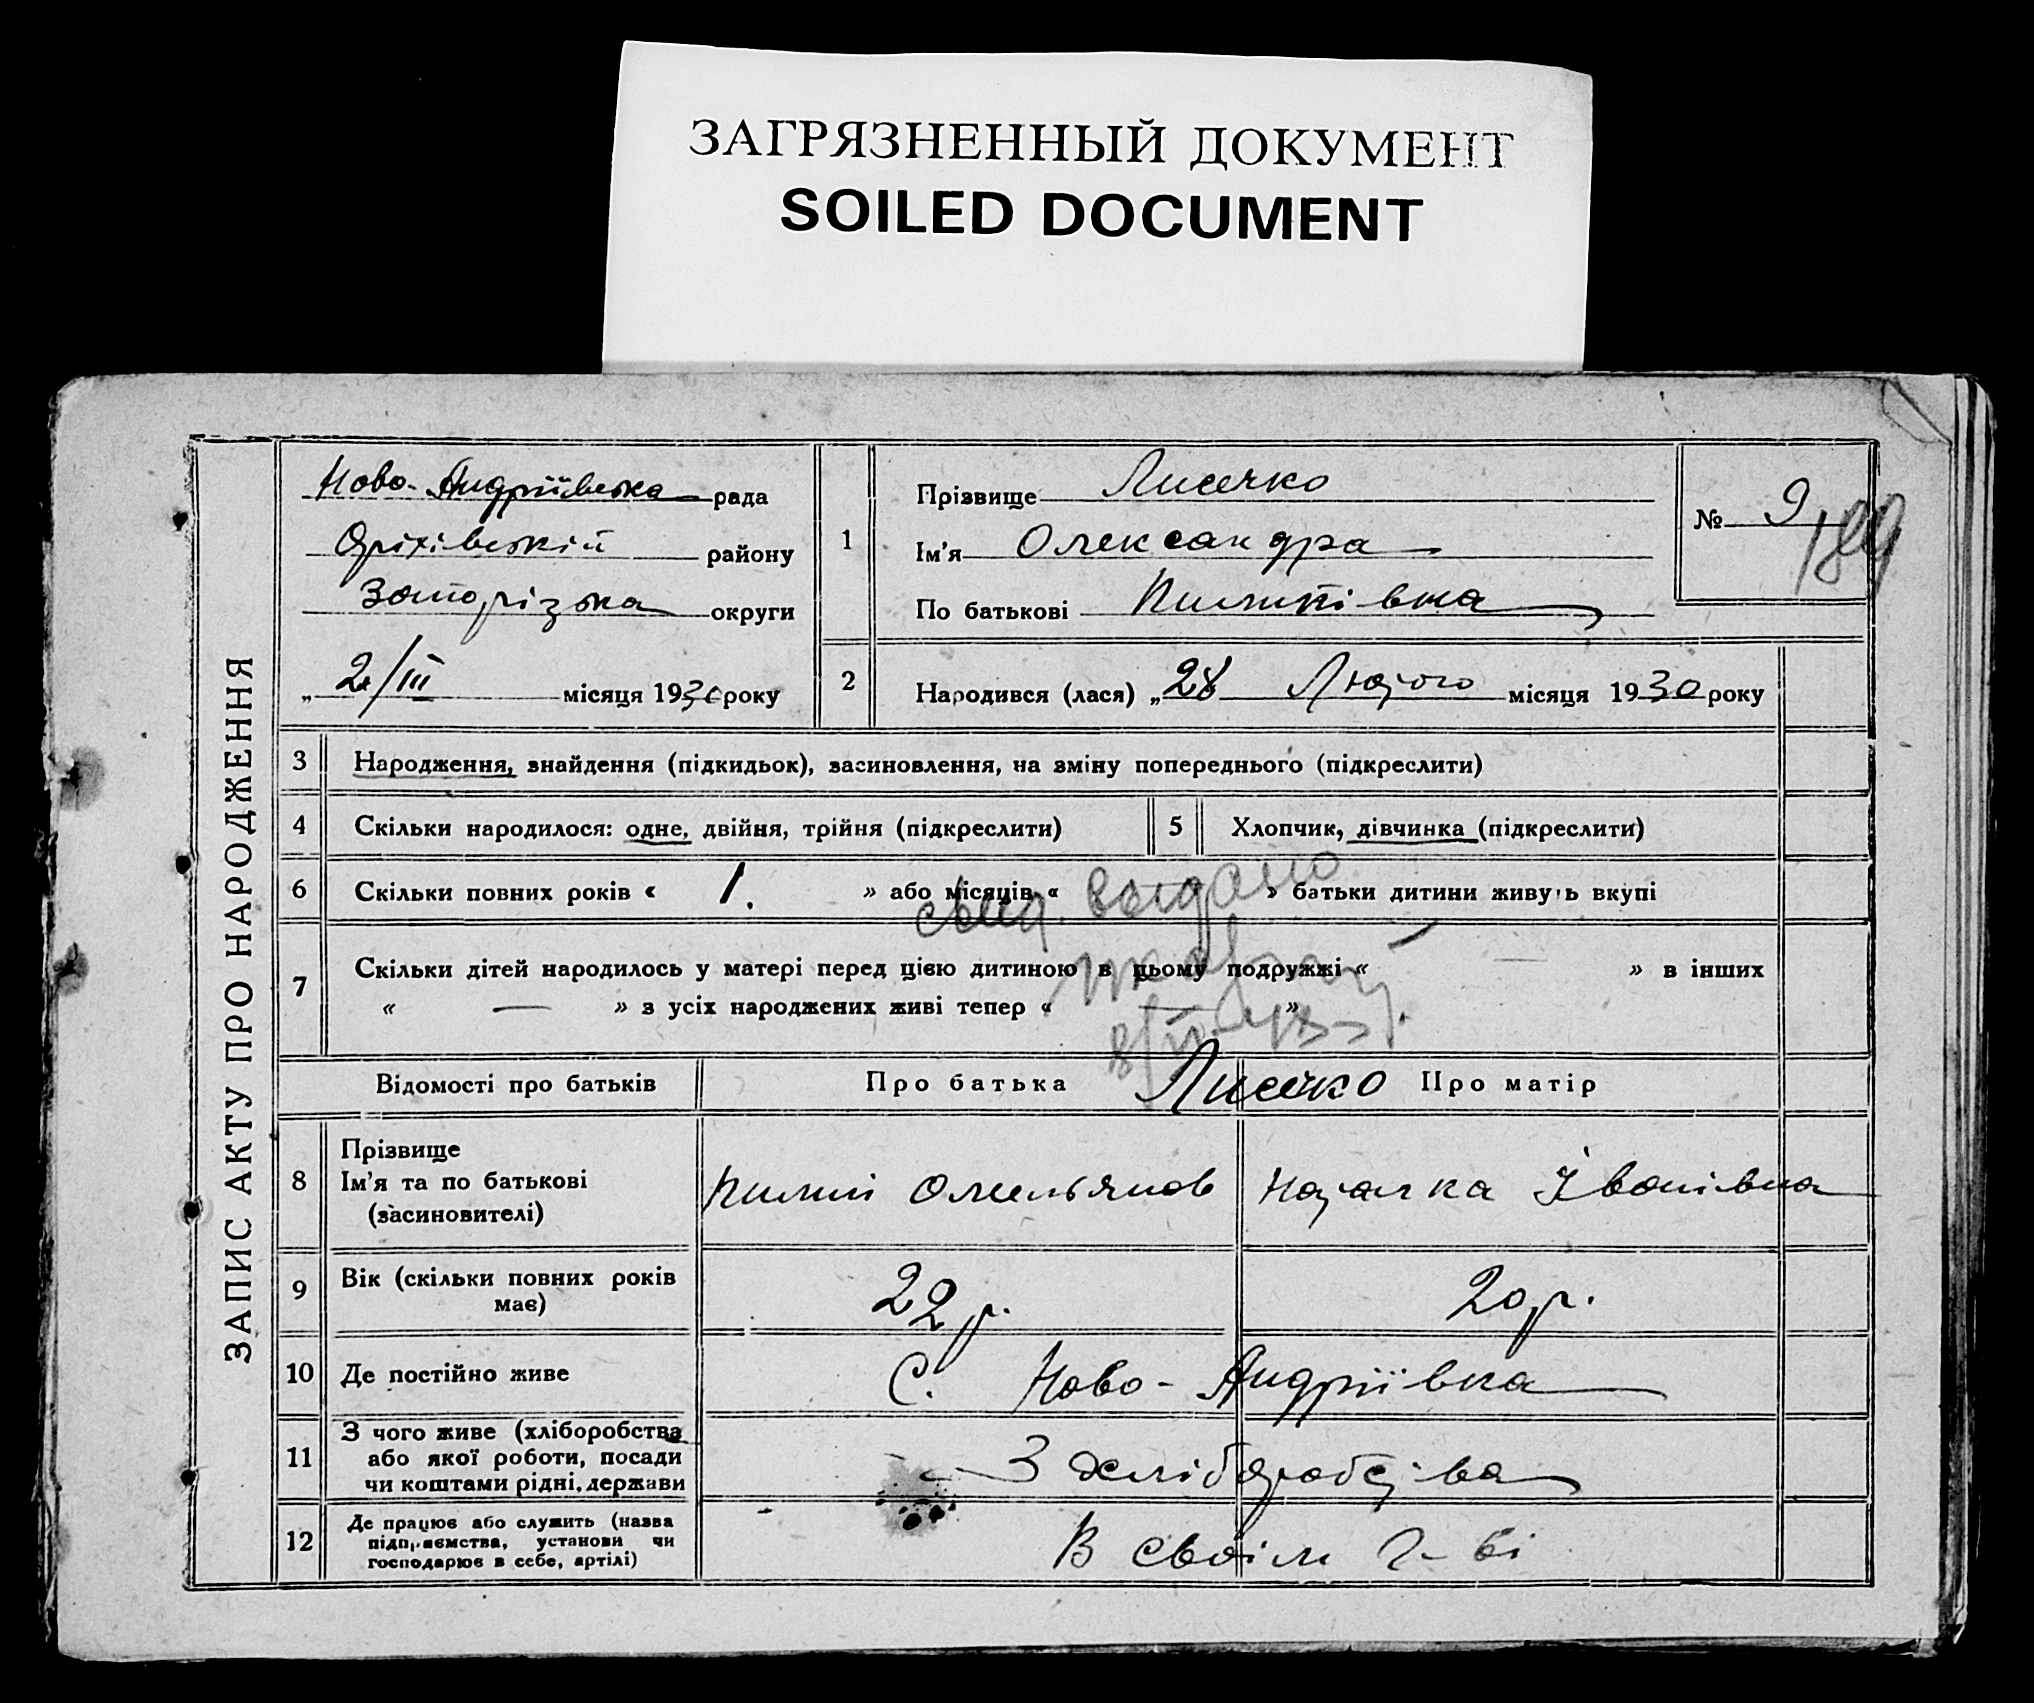 ЗАГРЯЗНЕННЫЙ ДОКУМЕНТ
SOILED DOCUMENT
ЗАПИС АКТУ ПРО НАРОДЖЕННЯ
Ново-Андріївська рада
Оріхівській району
Запорізька округи
„ 2/III місяця 1930 року
1
Прізвище Лисечко
Ім'я Олександра
По батькові Пилипівна
№ 9
189
2 Народився (лася) „ 28 Лютого місяця 1930 року
3 Народження, знайдення (підкидьок), засиновлення, на зміну попереднього (підкреслити)
4 Скільки народилося: одне, двійня, трійня (підкреслити)
5 Хлопчик, дівчинка (підкреслити)
6 Скільки повних років « 1. » або місяців « — » батьки дитини живуть вкупі
выдано
7 Скільки дітей народилось у матері перед цією дитиною в цьому подружжі « — » в інших
« — » з усіх народжених живі тепер « — »
Відомості про батьків Про батька Про матір
Лисечко
8 Прізвище
Ім'я та по батькові
(засиновителі)
Пилип Омельянов
Іванівна
9 Вік (скільки повних років
має)
22 р.
20 р.
10 Де постійно живе
С. Ново-Андріївка
11 З чого живе (хліборобства
або якої роботи, посади
чи коштами рідні, держави
З хліборобства
12 Де працює або служить (назва
підприємства, установи чи
господарює в себе, артілі)
В своім г-ві